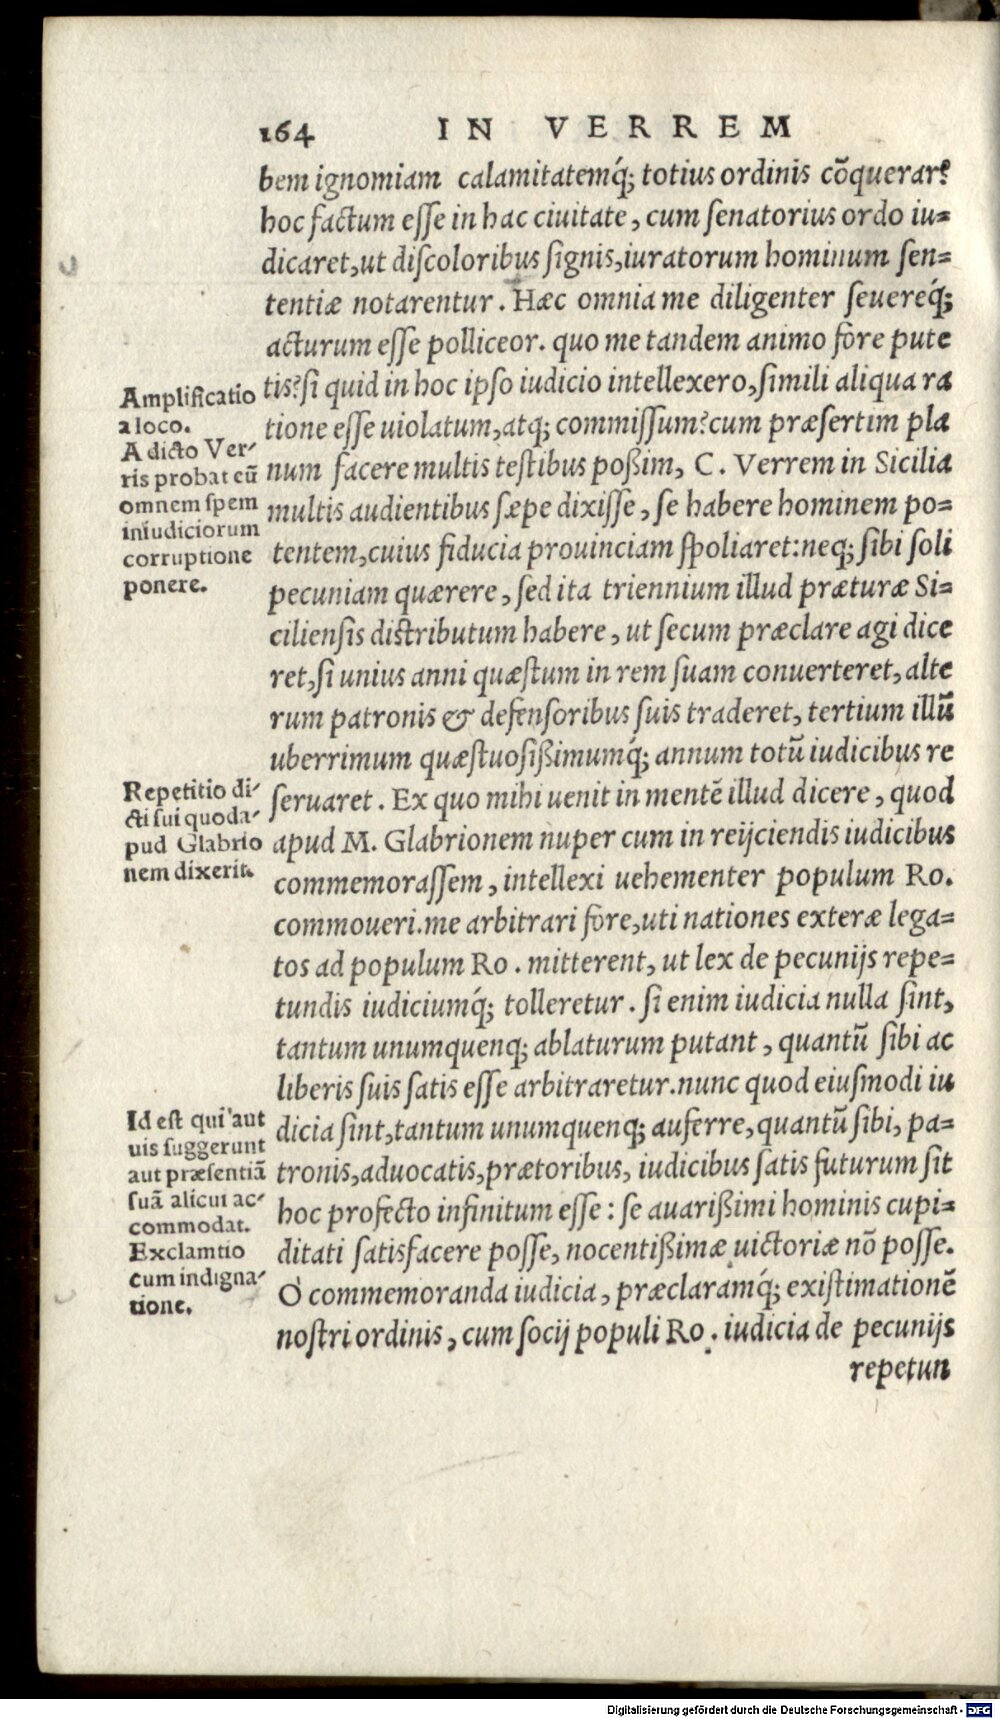 164 IN VERREM
bem ignomiam calamitatemq́; totius ordinis cõquerar?
hoc factum eſſe in hac ciuitate, cum ſenatorius ordo iu=
dicaret, ut diſcoloribus ſignis, iuratorum hominum ſen=
tentiæ notarentur. Hæc omnia me diligenter ſeuereq́;
acturum eſſe polliceor. quo me tandem animo fore pute
tis? ſi quid in hoc ipſo iudicio intellexero, ſimili aliqua ra
tione eſſe uiolatum, atq; commiſſum? cum præſertim pla
num facere multis teſtibus poßim, C. Verrem in Sicilia
multis audientibus ſæpe dixiſſe, ſe habere hominem po=
tentem, cuius fiducia prouinciam ſpoliaret: neq; ſibi ſoli
pecuniam quærere, ſed ita triennium illud præturæ Si=
cilienſis diſtributum habere, ut ſecum præclare agi dice
ret, ſi unius anni quæſtum in rem ſuam conuerteret, alte
rum patronis & defenſoribus ſuis traderet, tertium illũ
uberrimum quæſtuoſißimumq́; annum totũ iudicibus re
ſeruaret. Ex quo mihi uenit in mentẽ illud dicere, quod
apud M. Glabrionem nuper cum in reijciendis iudicibus
commemoraſſem, intellexi uehementer populum Ro.
commoueri. me arbitrari fore, uti nationes exteræ lega=
tos ad populum Ro. mitterent, ut lex de pecunijs repe=
tundis iudiciumq́; tolleretur. ſi enim iudicia nulla ſint,
tantum unumquenq; ablaturum putant, quantũ ſibi ac
liberis ſuis ſatis eſſe arbitraretur. nunc quod eiuſmodi iu
dicia ſint, tantum unumquenq; auferre, quantũ ſibi, pa=
tronis, aduocatis, prætoribus, iudicibus ſatis futurum ſit
hoc profecto infinitum eſſe: ſe auarißimi hominis cupi=
ditati ſatisfacere poſſe, nocentißimæ uictoriæ nõ poſſe.
O commemoranda iudicia, præclaramq́; exiſtimationẽ
noſtri ordinis, cum ſocij populi Ro. iudicia de pecunijs
repetun
Amplificatio
a loco.
A dicto Ver-
ris probat eũ
omnem ſpem
in iudiciorum
corruptione
ponere.
Repetitio di-
cti ſui quod a-
pud Glabrio
nem dixerit.
Id est qui aut
uis ſuggerunt
aut præſentiã
ſuã alicui ac-
commodat.
Exclamtio
cum indigna-
tione.
Digitalisierung gefördert durch die Deutsche Forschungsgemeinschaft - DFG